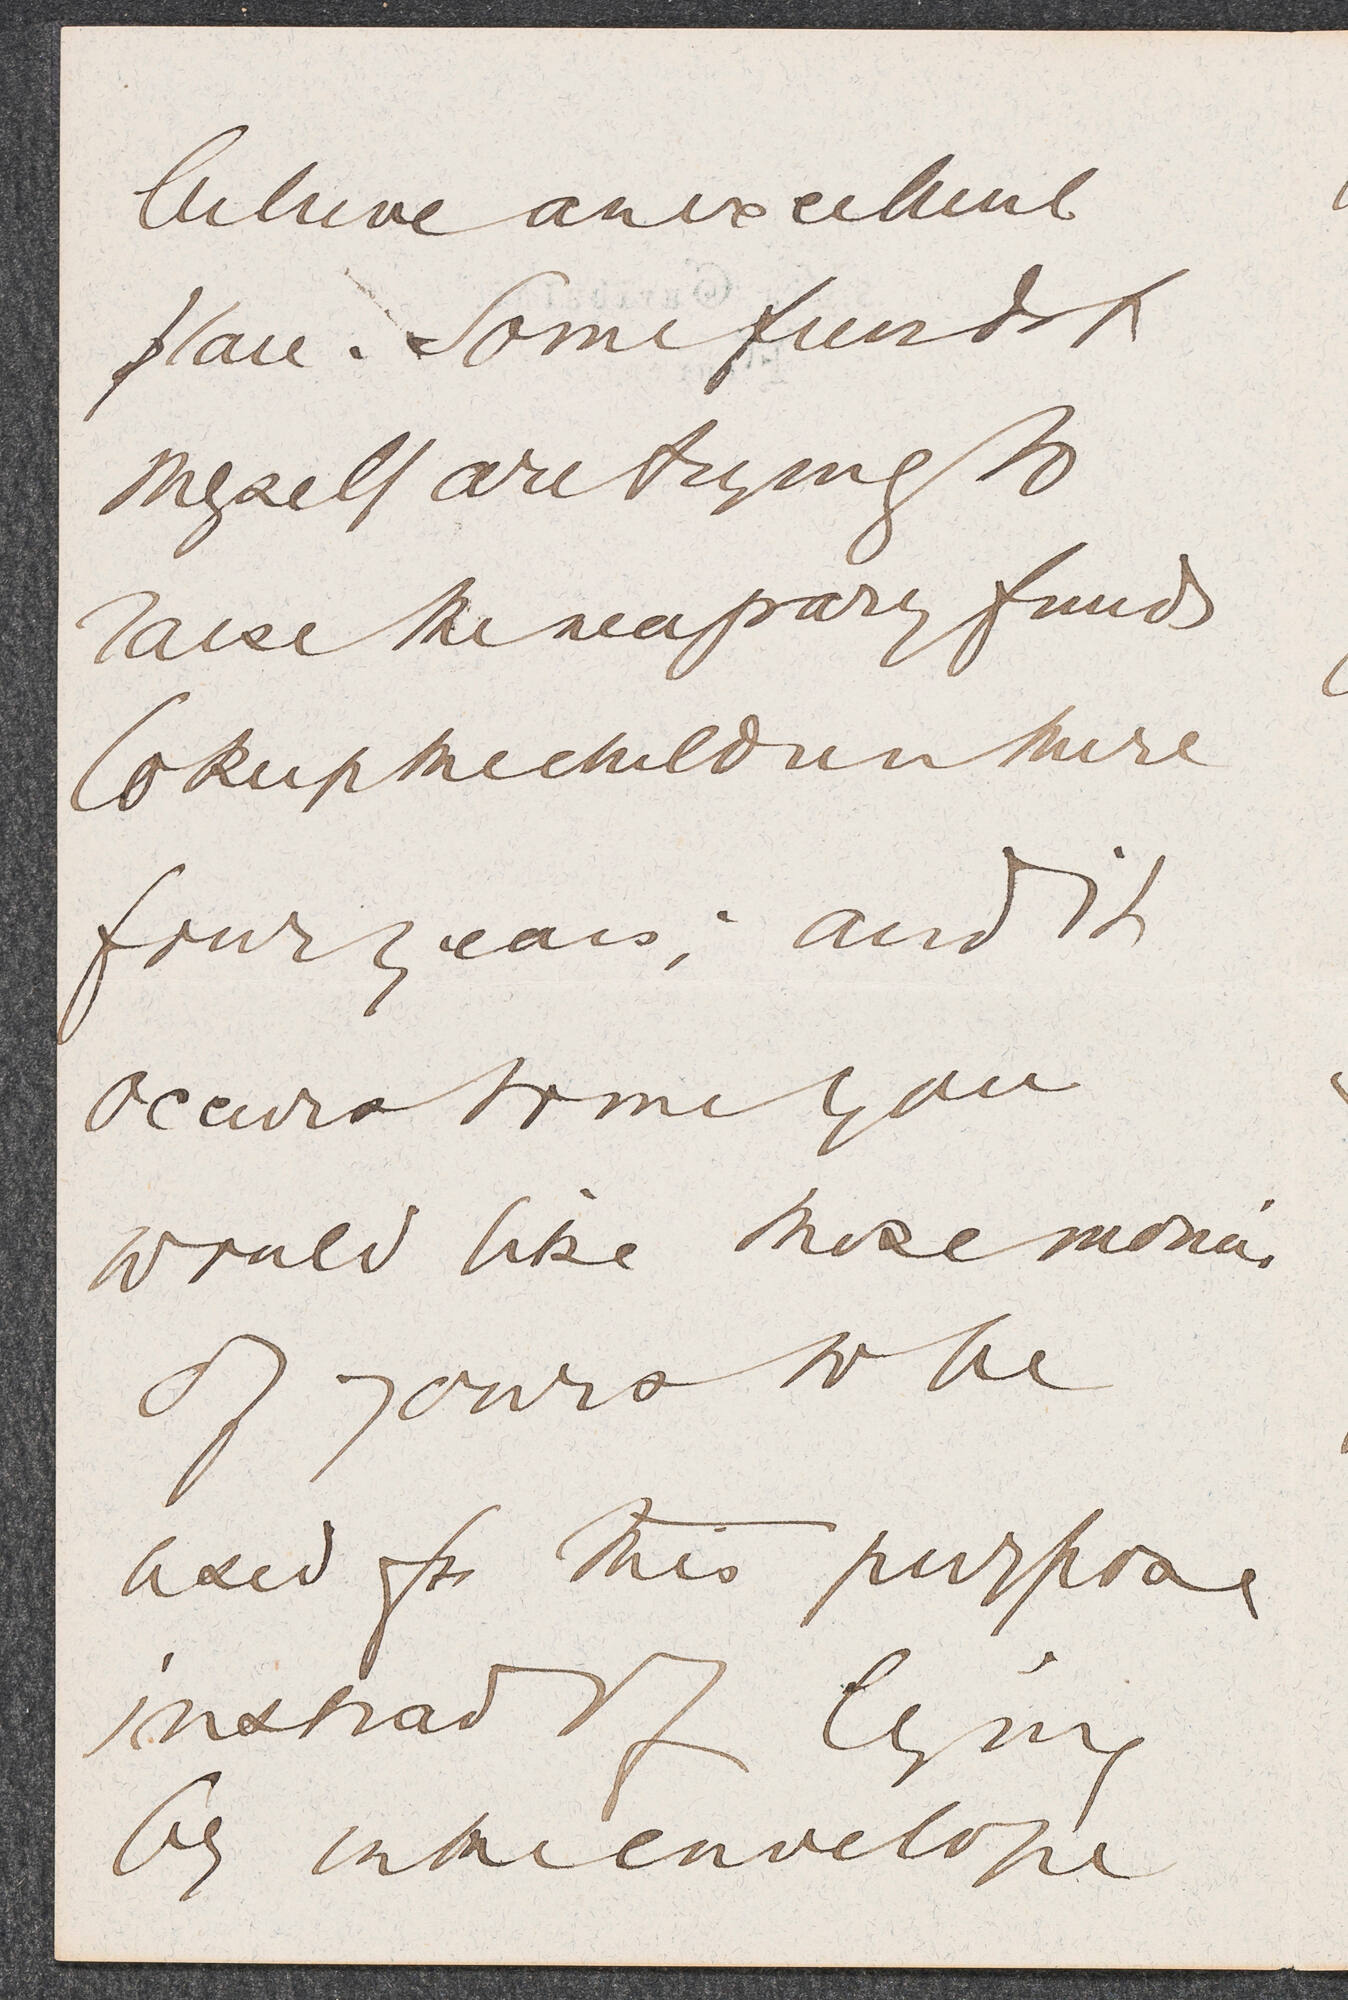 believe an excellent
place. Some friends &
myself are trying to
raise the necessary funds
to keep the children there
four years; and it
occurs to me you
would like those monies
of yours to be
used for this purpose
instead of lying
by in the envelope